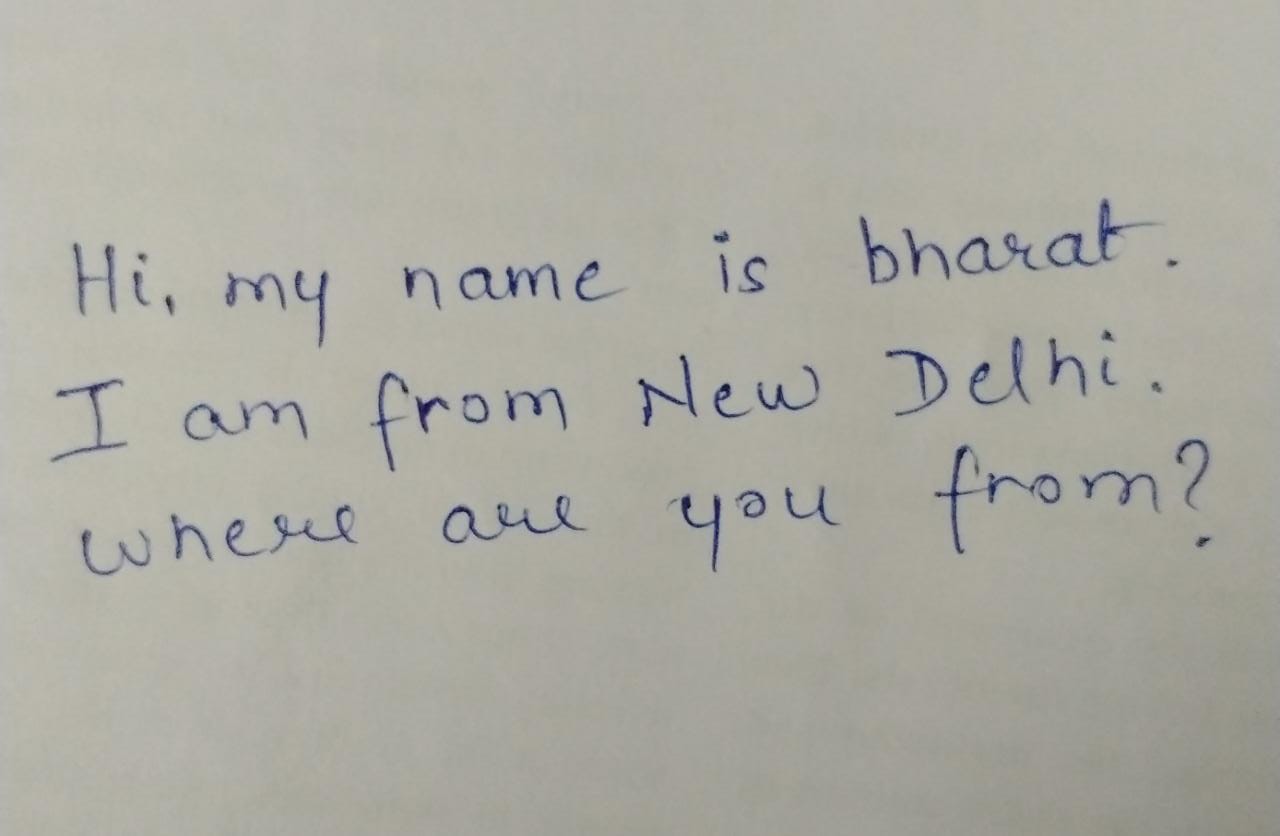 Hi, my name is bharat.
I am from New Delhi.
where are you from?